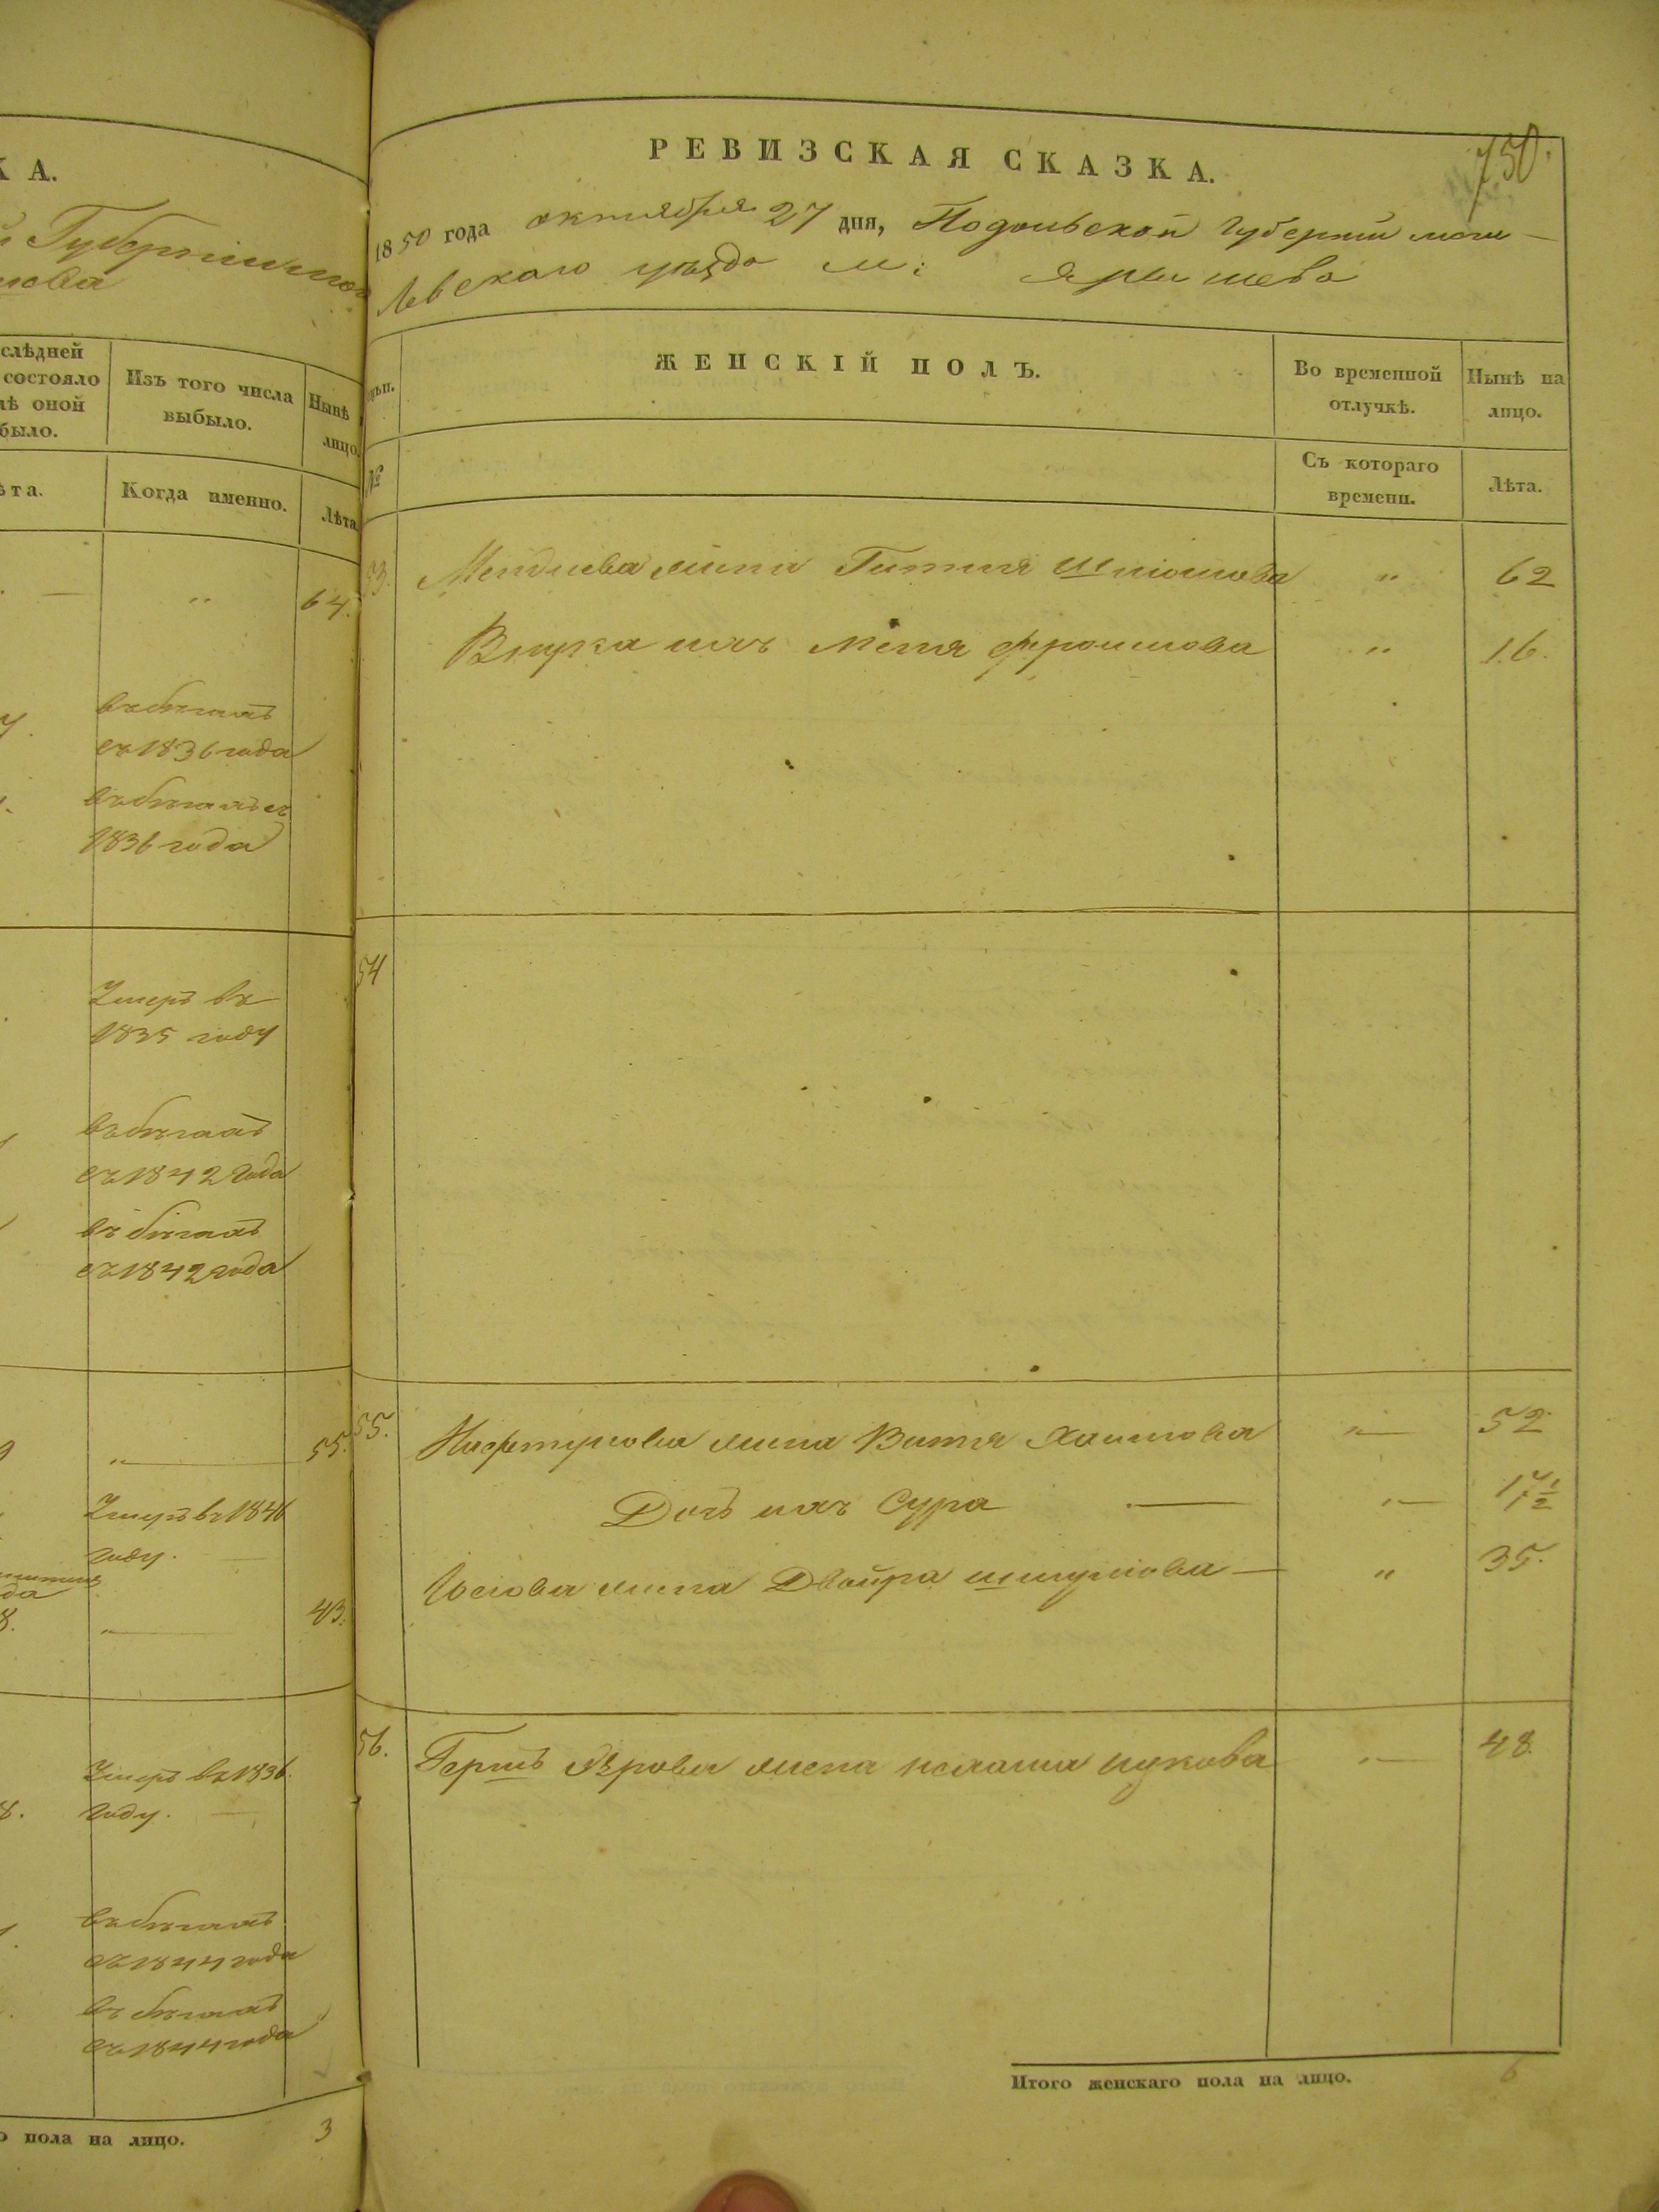 К А.
Губерніи
слѣдней
состояло
оной
было.
Изъ того числа
выбыло.
Нынѣ
лицо
ѣта.
Когда именно.
Лѣта
„
64.
въ бѣгахъ
съ 1836 года
въ бѣгахъ съ
1836 года
Умеръ въ
1835 году
въ бѣгахъ
съ 1842 года
въ бѣгахъ
съ 1842 года
„
55.
Умеръ въ 1846
году.
„
43.
Умеръ въ 1836.
8. году.
въ бѣгахъ
съ 1844 года
въ бѣгахъ
съ 1844 года
пола на лицо.
3
750.
РЕВИЗСКАЯ СКАЗКА.
1850 года октября 27 дня, Подольской Губерніи моги-
левскаго уѣзда м: Ярышева
ЖЕНСКІЙ ПОЛЪ.
Во временной
отлучкѣ.
Нынѣ на
лицо.
№
Съ котораго
времени.
Лѣта.
53. Менделева жена Гитля „ 62
Внука ихъ Фроимова „ 16.
54
55. Нафтулова жена Витля Хаимова „ 52
Дочь ихъ Сура — „ 17 1/2
Иосиова жена Двойра Шмулиова — „ 35.
56. Гершъ Лѣрова жена „ 48.
Итого женскаго пола на лицо. 6